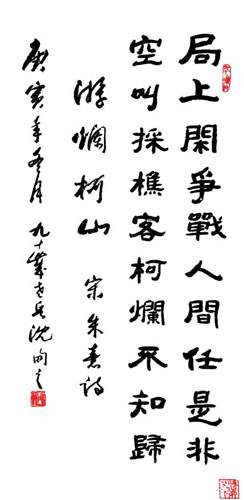 局上閑爭戰人間任是非
空叫採樵客柯爛不知歸
游爛柯山 宋朱熹詩
庚寅年冬月 九十歲老兵沈陶之